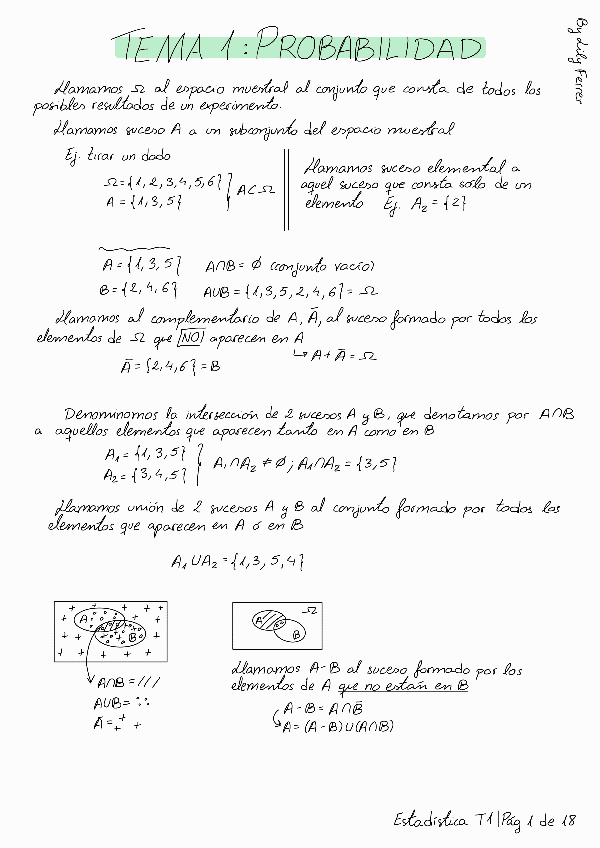 TEMA 1: PROBABILIDAD
By Lily Ferrer
Llamamos Ω al espacio muestral al conjunto que consta de todos los
posibles resultados de un experimento.
Llamamos suceso A a un subconjunto del espacio muestral
Ej. tirar un dado
Ω = {1, 2, 3, 4, 5, 6}
A = {1, 3, 5}
A ⊂ Ω
Llamamos suceso elemental a
aquel suceso que consta sólo de un
elemento Ej. A₂ = {2}
A = {1, 3, 5} A∩B = ∅ (conjunto vacío)
B = {2, 4, 6} A∪B = {1, 3, 5, 2, 4, 6} = Ω
Llamamos al complementario de A, Ā, al suceso formado por todos los
elementos de Ω que NO aparecen en A
↳ A + Ā = Ω
Ā = {2, 4, 6} = B
Denominamos la intersección de 2 sucesos A y B, que denotamos por A∩B
a aquellos elementos que aparecen tanto en A como en B
A₁ = {1, 3, 5}
A₂ = {3, 4, 5}
A₁∩A₂ ≠ ∅ ; A₁∩A₂ = {3, 5}
Llamamos unión de 2 sucesos A y B al conjunto formado por todos los
elementos que aparecen en A ó en B
A₁∪A₂ = {1, 3, 5, 4}
A
B
A∩B = ///
A∪B = ∵
Ā = + + +
Ω
A
B
Llamamos A-B al suceso formado por los
elementos de A que no están en B
A - B = A∩B̄
A = (A-B)∪(A∩B)
Estadística T1|Pág 1 de 18